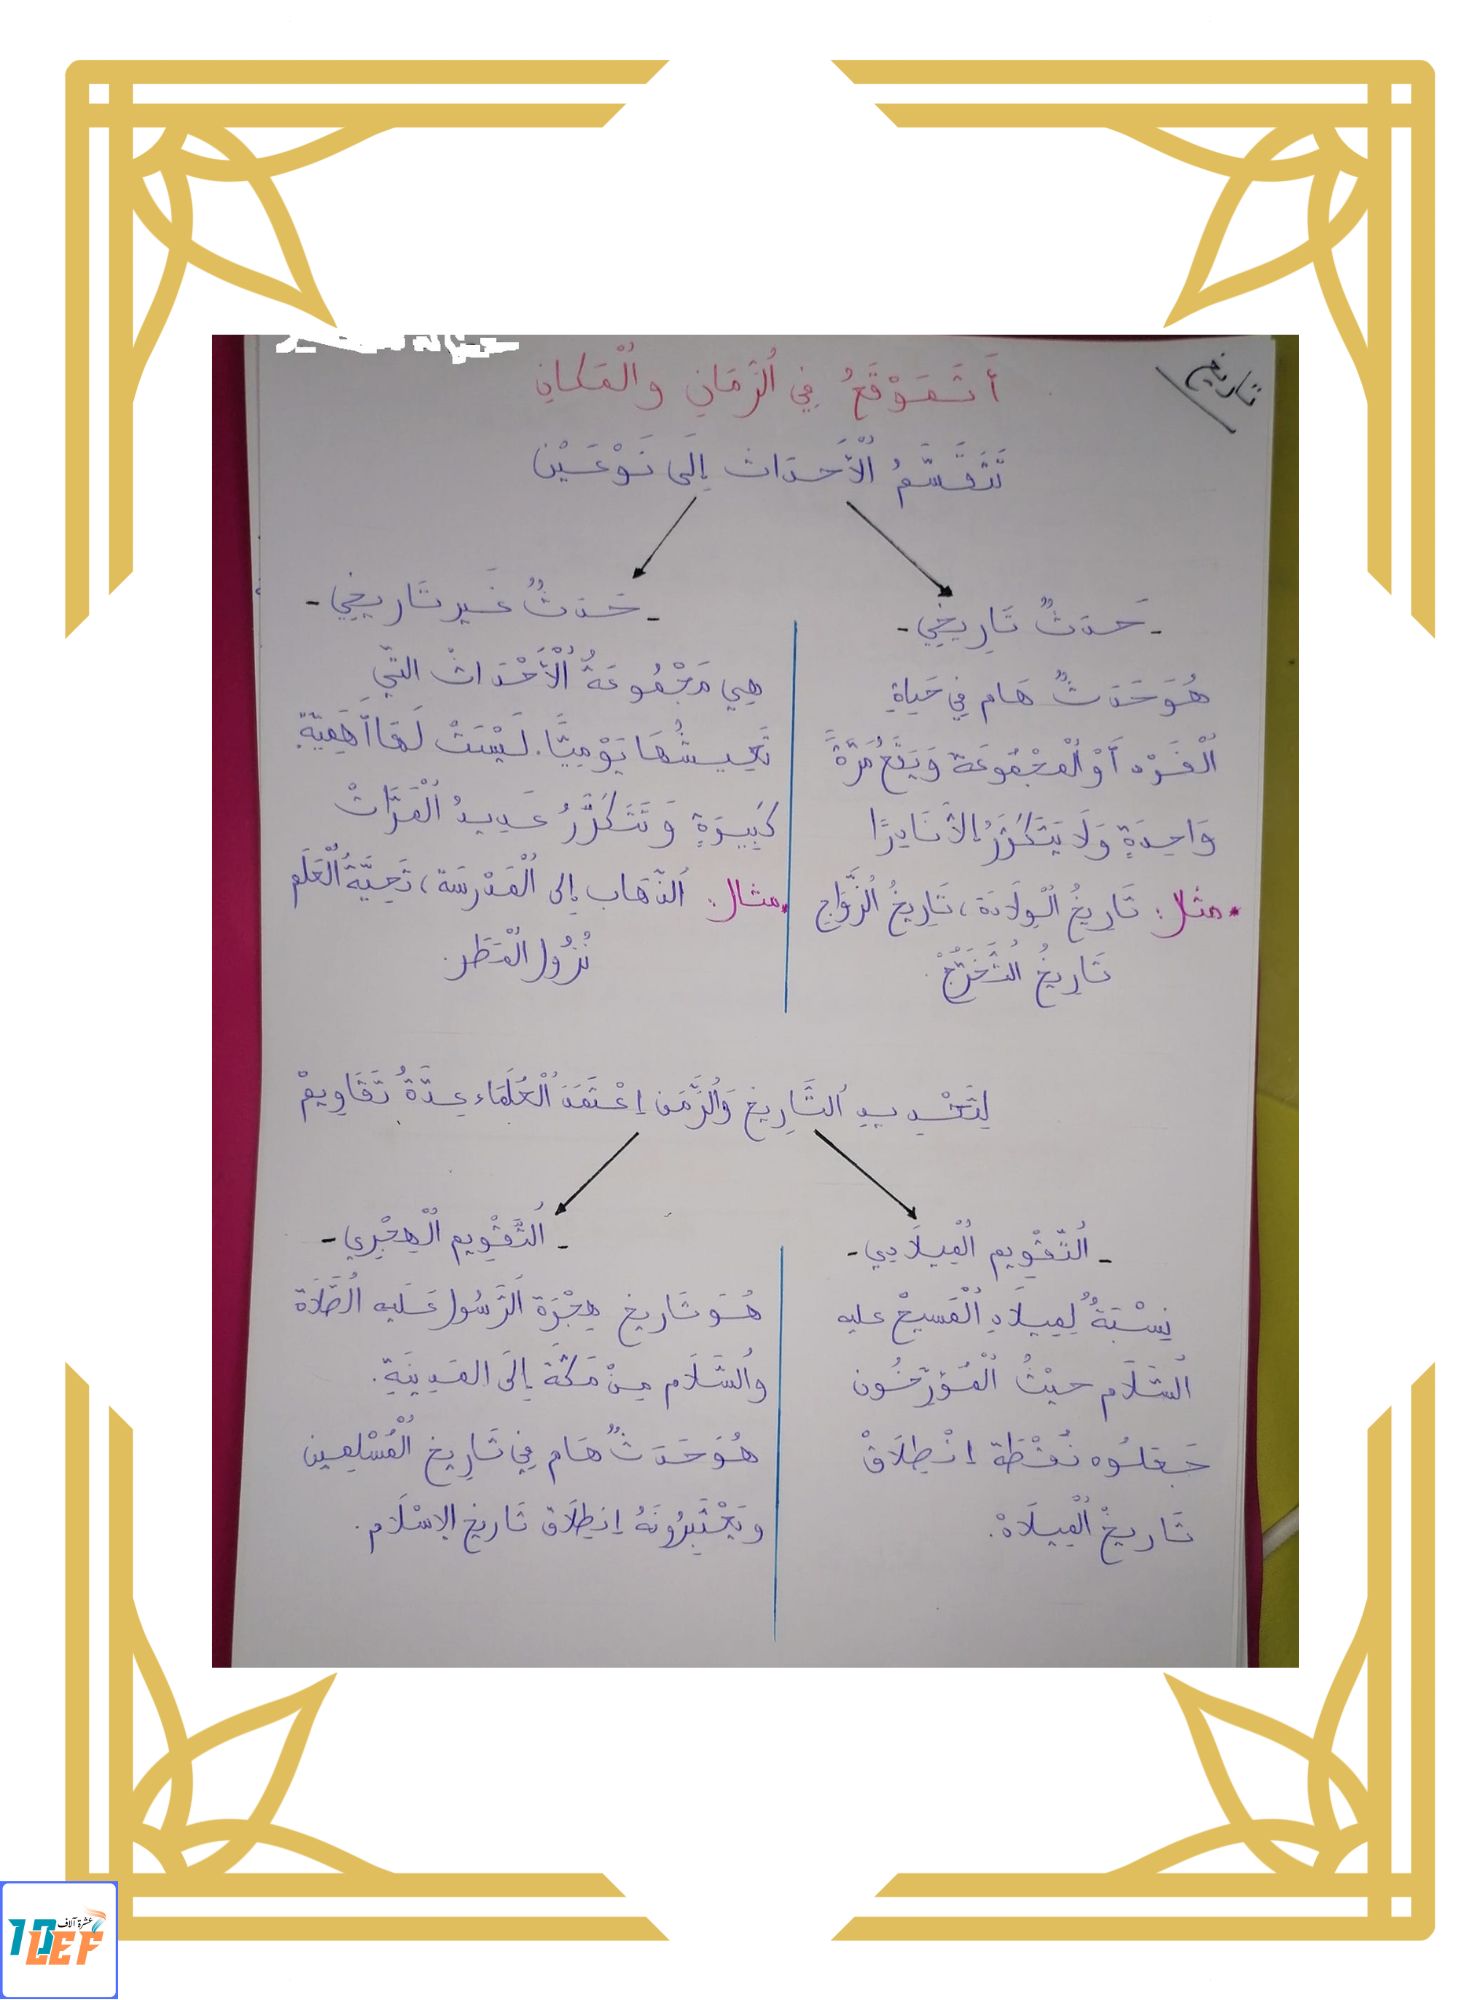 تاريخ
أَتَمَوْقَعُ فِي الزَمَانِ والْمَكانِ
تَتَقَسَّمُ الْأَحداث إِلَى نَوْعَيْن
- حَدَثٌ تَارِيخِي -
هُوَ حَدَثٌ هَام فِي حَيَاةِ
الْفَرْد أَوْ الْمَجْمُوعَة وَيَقَعُ مَرَّةً
وَاحِدَةٍ وَلَا يَتَكَرَّرُ إِلاَّ نَادِرًا
* مثال: تَارِيخُ الْوِلَادَة، تَارِيخُ الزَّوَاجِ
تَارِيخُ التَّخَرُّجْ.
- حَدَثٌ غَير تَاريخِي -
هِي مَجْمُوعَةُ الْأَحْدَاثْ التِّي
نَعِيشُهَا يَوْمِيًّا. لَيْسَتْ لَهَا أَهَمِيَّةٍ
كَبِيرَةٍ وَ تَتَكَرَّرُ عَدِيدُ الْمَرَّاتْ
* مثال: الذّهَاب إِلى الْمَدْرسَة، تَحِيَّةُ الْعَلَم
نُزُول الْمَطَر.
لِتَحْدِيدِ التَّارِيخ وَالزَّمَن اِعْتَمَدَ الْعُلَمَاء عِدَّةُ تَقَاوِيمْ
- التَّقْوِيم الْمِيلَادِي -
نِسْبَةٌ لِمِيلَادِ الْمَسيحْ عليه
السَّلَام حيْثُ الْمُؤرّخُون
جَعلُوه نُقْطَة اِنْطِلَاقْ
تَاريخْ الْمِيلَادْ.
- التَّقْوِيم الْهِجْرِي -
هُوَ تَاريخ هِجْرَة الرَّسُول عَلَيه الصَّلَاة
والسَّلَام مِنْ مَكّة إِلَى المَدِينَةِ.
هُوَ حَدَثٌ هَام فِي تَارِيخ الْمُسْلِمِين
ويَعْتَبِرُونَهُ اِنطِلَاق تَاريخ الإسْلَام.
عشرة آلاف
10LEF